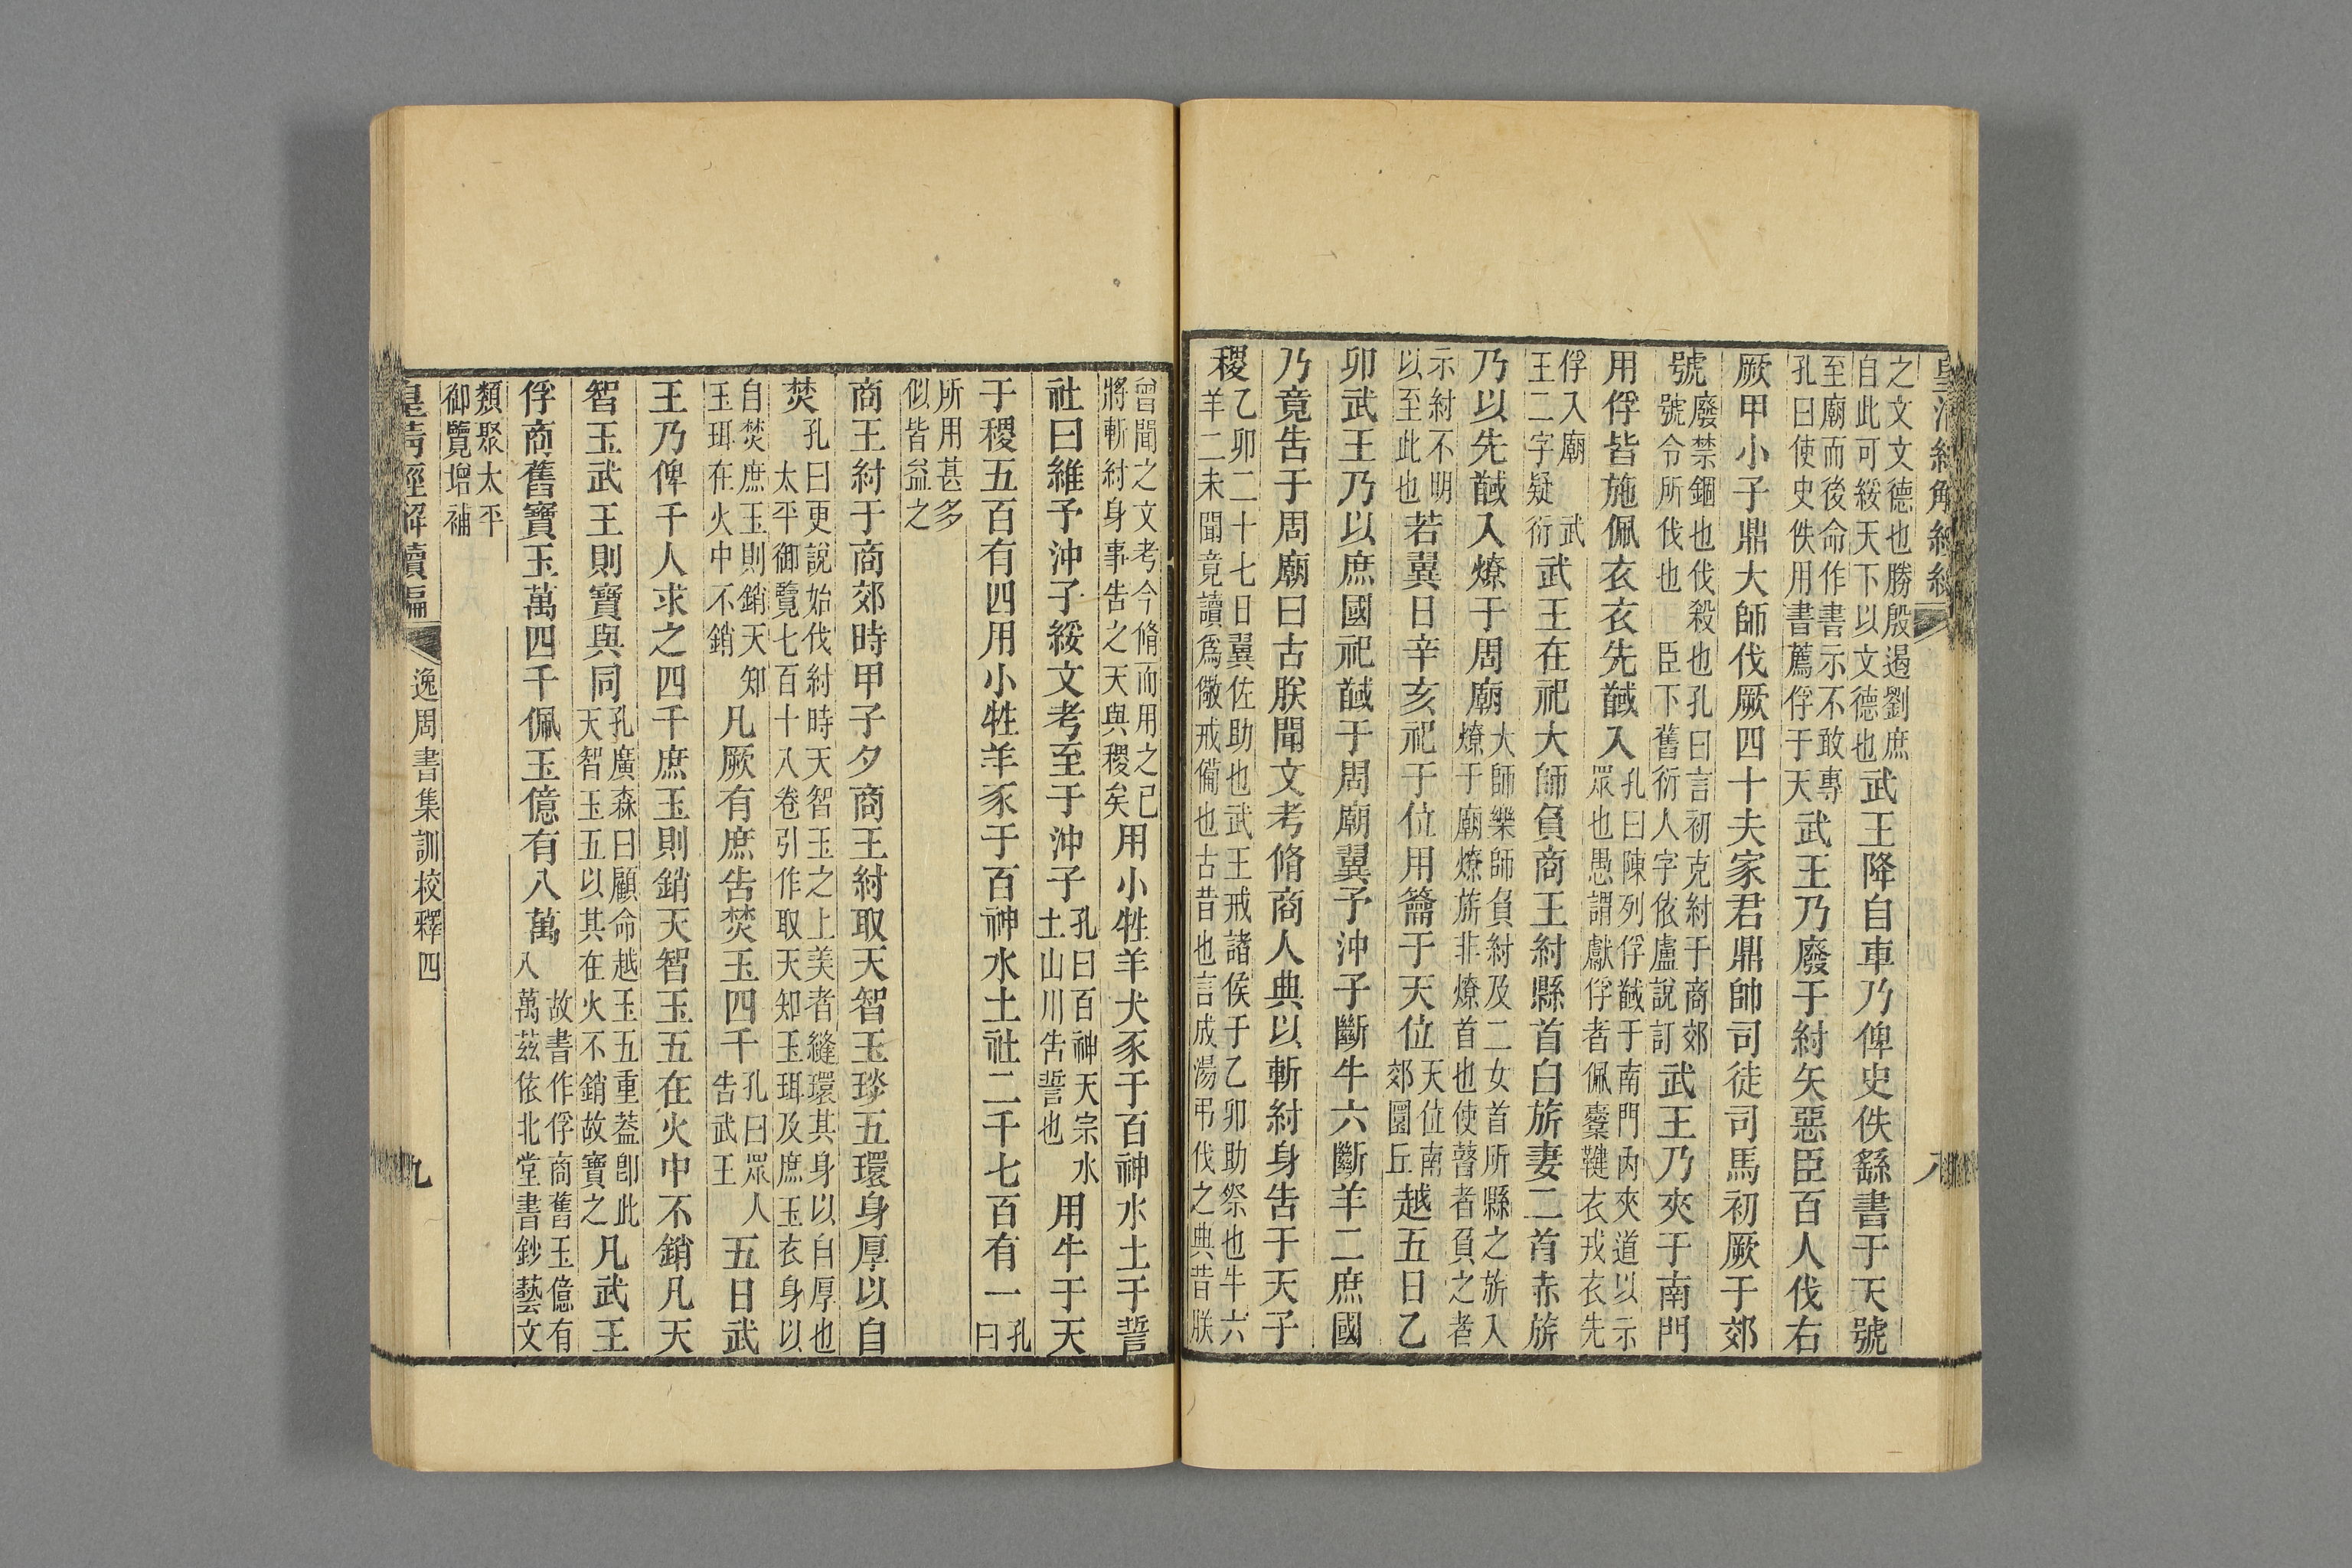 之文文德也勝殷遏劉庶自此可綏天下以文德也武王降自車乃俾史佚繇書于天號
至廟而後命作書示不敢專孔曰使史佚用書薦俘于天武王乃廢于紂矢惡臣百人伐右
厥甲小子鼎大師伐厥四十夫家君鼎帥司徒司馬初厥于郊
號廢禁錮也伐殺也孔曰言初克紂于商郊號令所伐也臣下舊衍人字依盧說訂武王乃夾于南門
用俘皆施佩衣衣先馘入孔曰陳列俘馘于南門內夾道以示眾也愚謂獻俘者佩橐鞬衣戎衣先
俘入廟武王二字疑衍武王在祀大師負商王紂縣首白旂妻二首赤旂
乃以先馘入燎于周廟大師樂師負紂及二女首所縣之旂入燎于廟燎旂非燎首也使瞽者負之者
示紂不明以至此也若翼日辛亥祀于位用籥于天位天位南郊圜丘越五日乙
卯武王乃以庶國祀馘于周廟翼予沖子斷牛六斷羊二庶國
乃竟告于周廟曰古朕聞文考脩商人典以斬紂身告于天子
稷乙卯二十七日翼佐助也武王戒諸侯于乙卯助祭也牛六羊二未聞竟讀爲儆戒備也古昔也言成湯弔伐之典昔朕
曾聞之文考今脩而用之已將斬紂身事告之天與稷矣用小牲羊犬豕于百神水土于誓
社曰維予沖子綏文考至于沖子孔曰百神天宗水土山川告誓也用牛于天
于稷五百有四用小牲羊豕于百神水土社二千七百有一孔曰
所用甚多似皆益之
商王紂于商郊時甲子夕商王紂取天智玉琰五環身厚以自
焚孔曰更說始伐紂時天智玉之上美者縫環其身以自厚也太平御覽七百十八卷引作取天知玉珥及庶玉衣身以
自焚庶玉則銷天知玉珥在火中不銷凡厥有庶告焚玉四千孔曰眾人告武王五日武
王乃俾千人求之四千庶玉則銷天智玉五在火中不銷凡天
智玉武王則寶與同孔廣森曰顧命越玉五重葢卽此天智玉五以其在火不銷故寶之凡武王
俘商舊寶玉萬四千佩玉億有八萬故書作俘商舊玉億有八萬茲依北堂書鈔藝文
類聚太平御覽增補
皇清經解續編
逸周書集訓校釋四
九